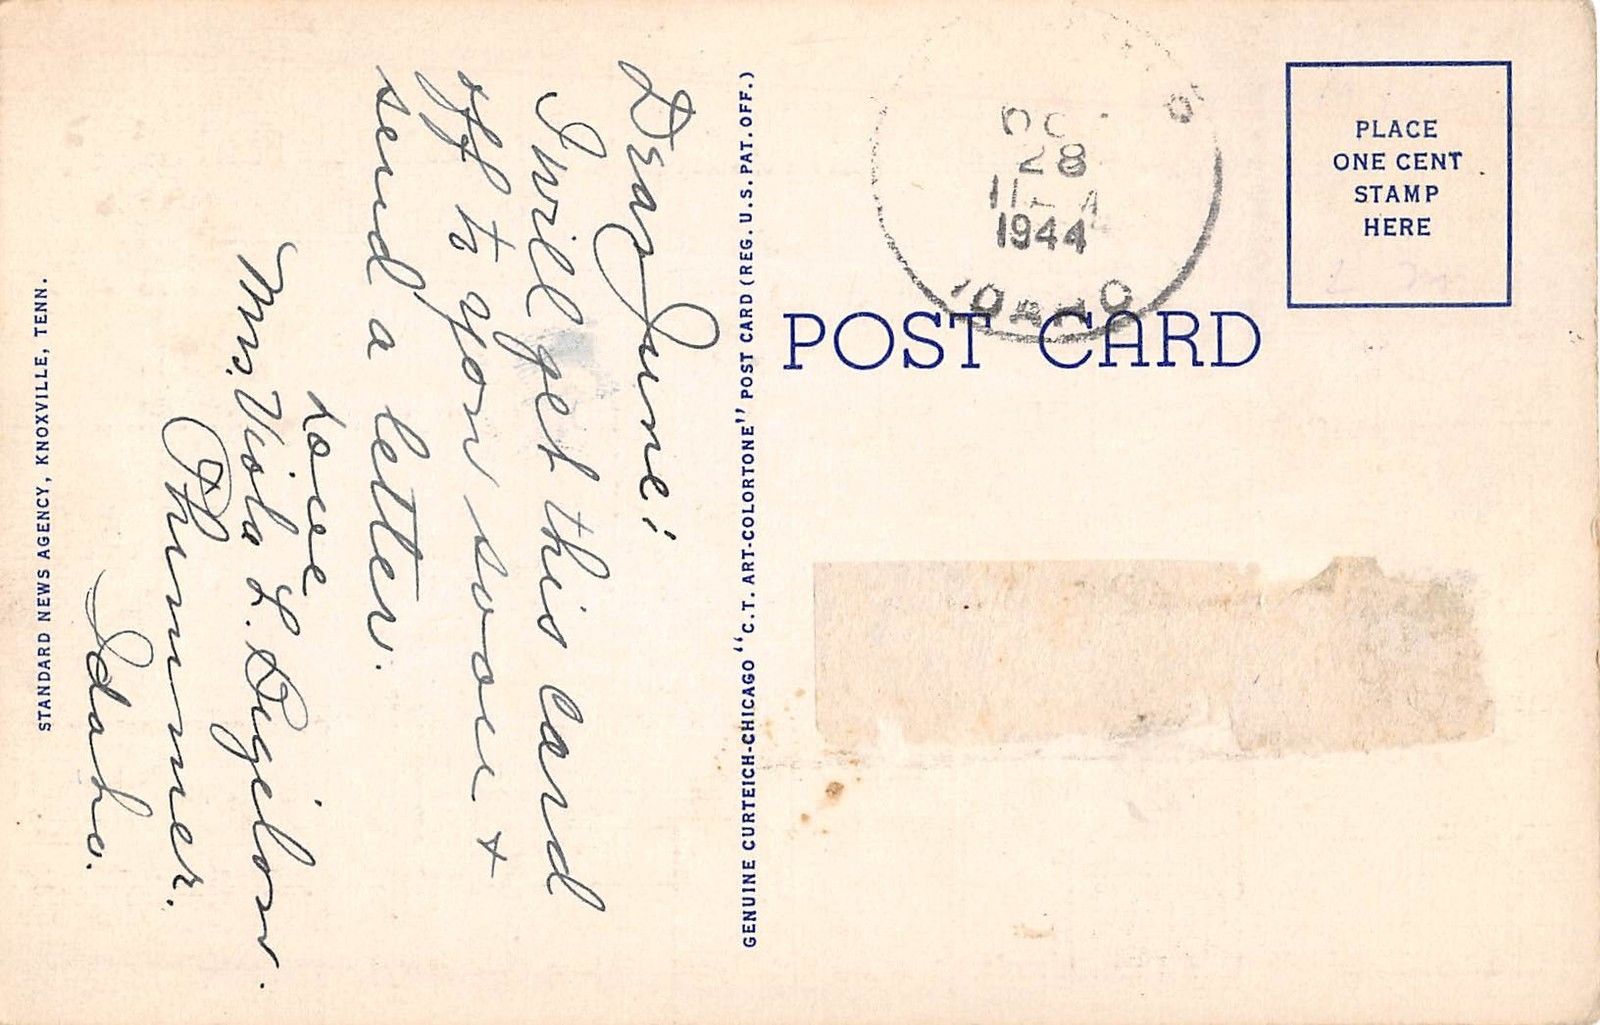 Dear June:
I will get this card
off to you soon +
send a letter.
Love
Mrs. Viola L. Bigelow.
Plummer.
Idaho.
STANDARD NEWS AGENCY, KNOXVILLE, TENN.
GENUINE CURTEICH-CHICAGO "C.T. ART-COLORTONE" POST CARD (REG. U.S. PAT. OFF.)
POST CARD
PLACE
ONE CENT
STAMP
HERE
28
1944
IDAHO